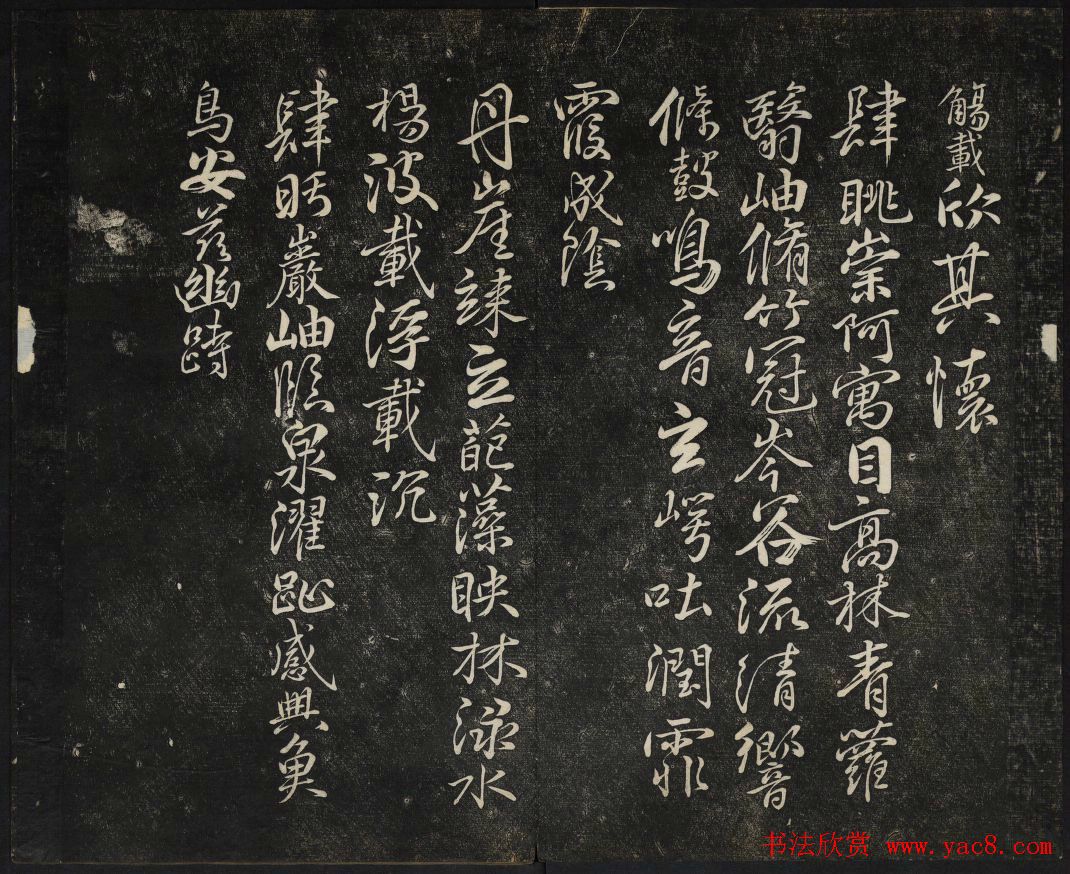 觴載欣其懷
肆眺崇阿寓目高林青蘿
翳岫脩竹冠岑谷流清響
條鼓鳴音玄崿吐潤霏
霞成陰
丹崖竦立葩藻映林淥水
楊波載浮載沉
肆眄巖岫臨泉濯趾感興魚
鳥安茲幽跱
书法欣赏 www.yac8.com